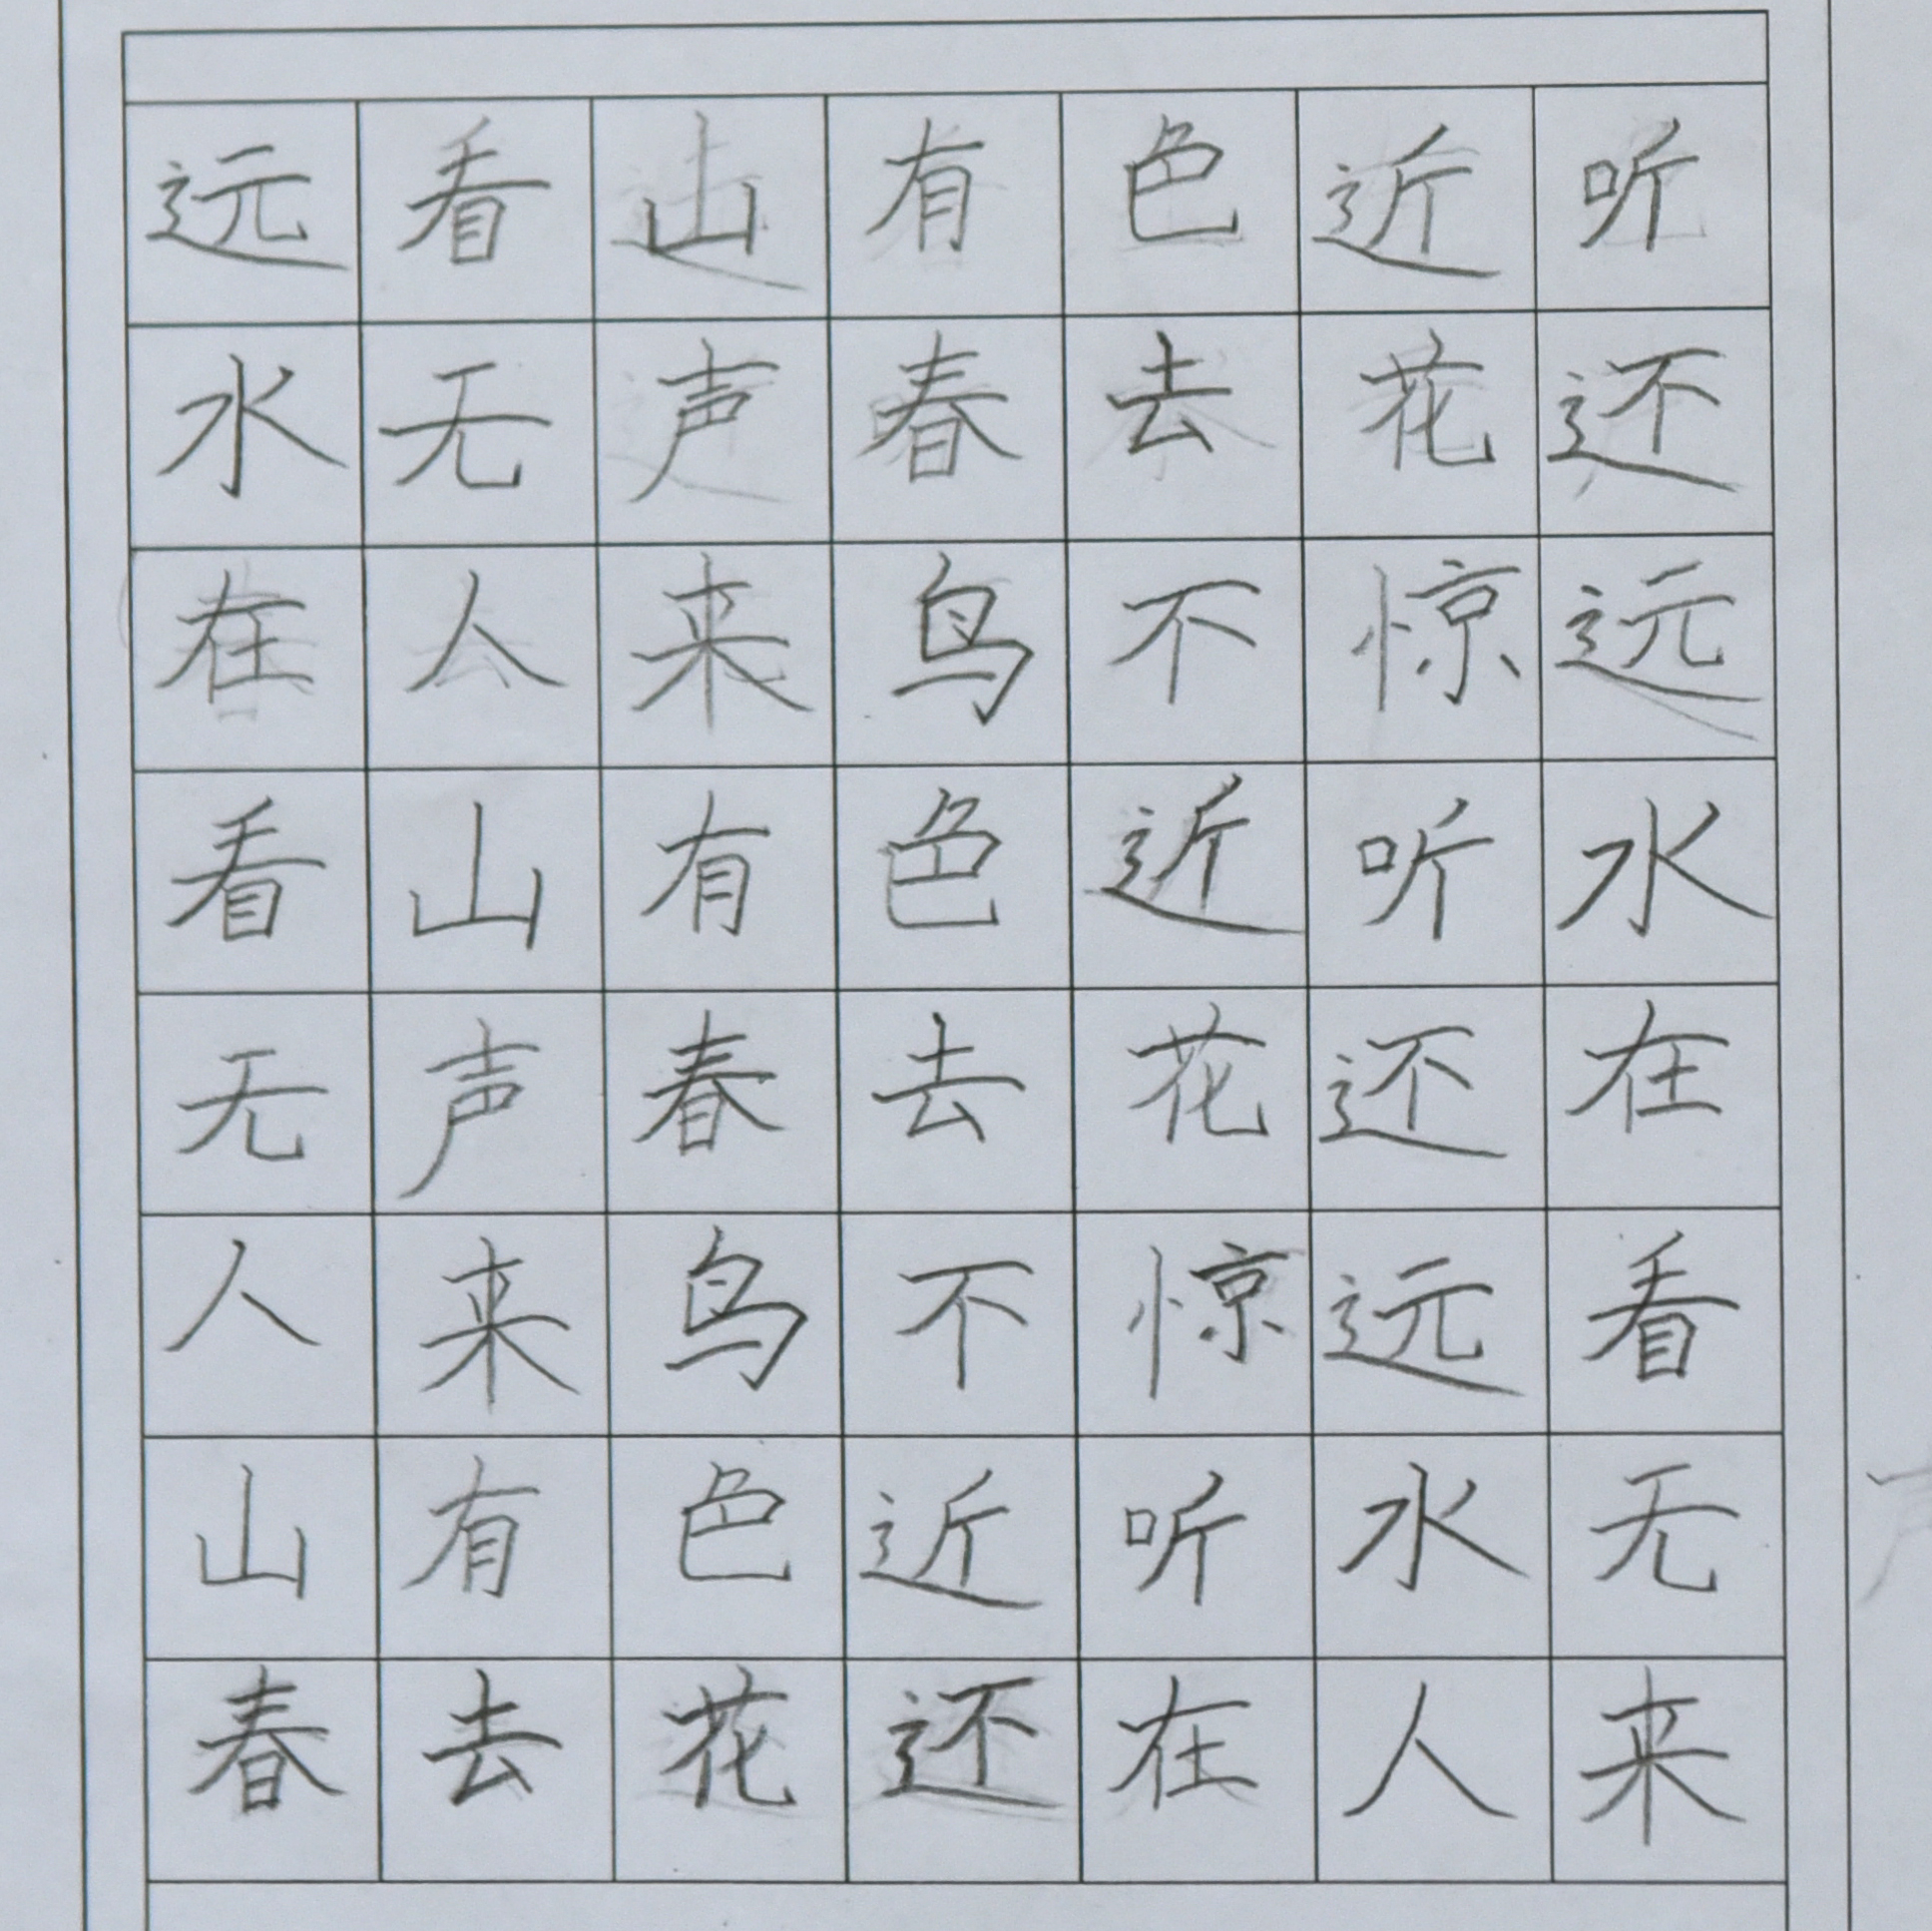 远看山有色近听
水无声春去花还
在人来鸟不惊远
看山有色近听水
无声春去花还在
人来鸟不惊远看
山有色近听水无
春去花还在人来